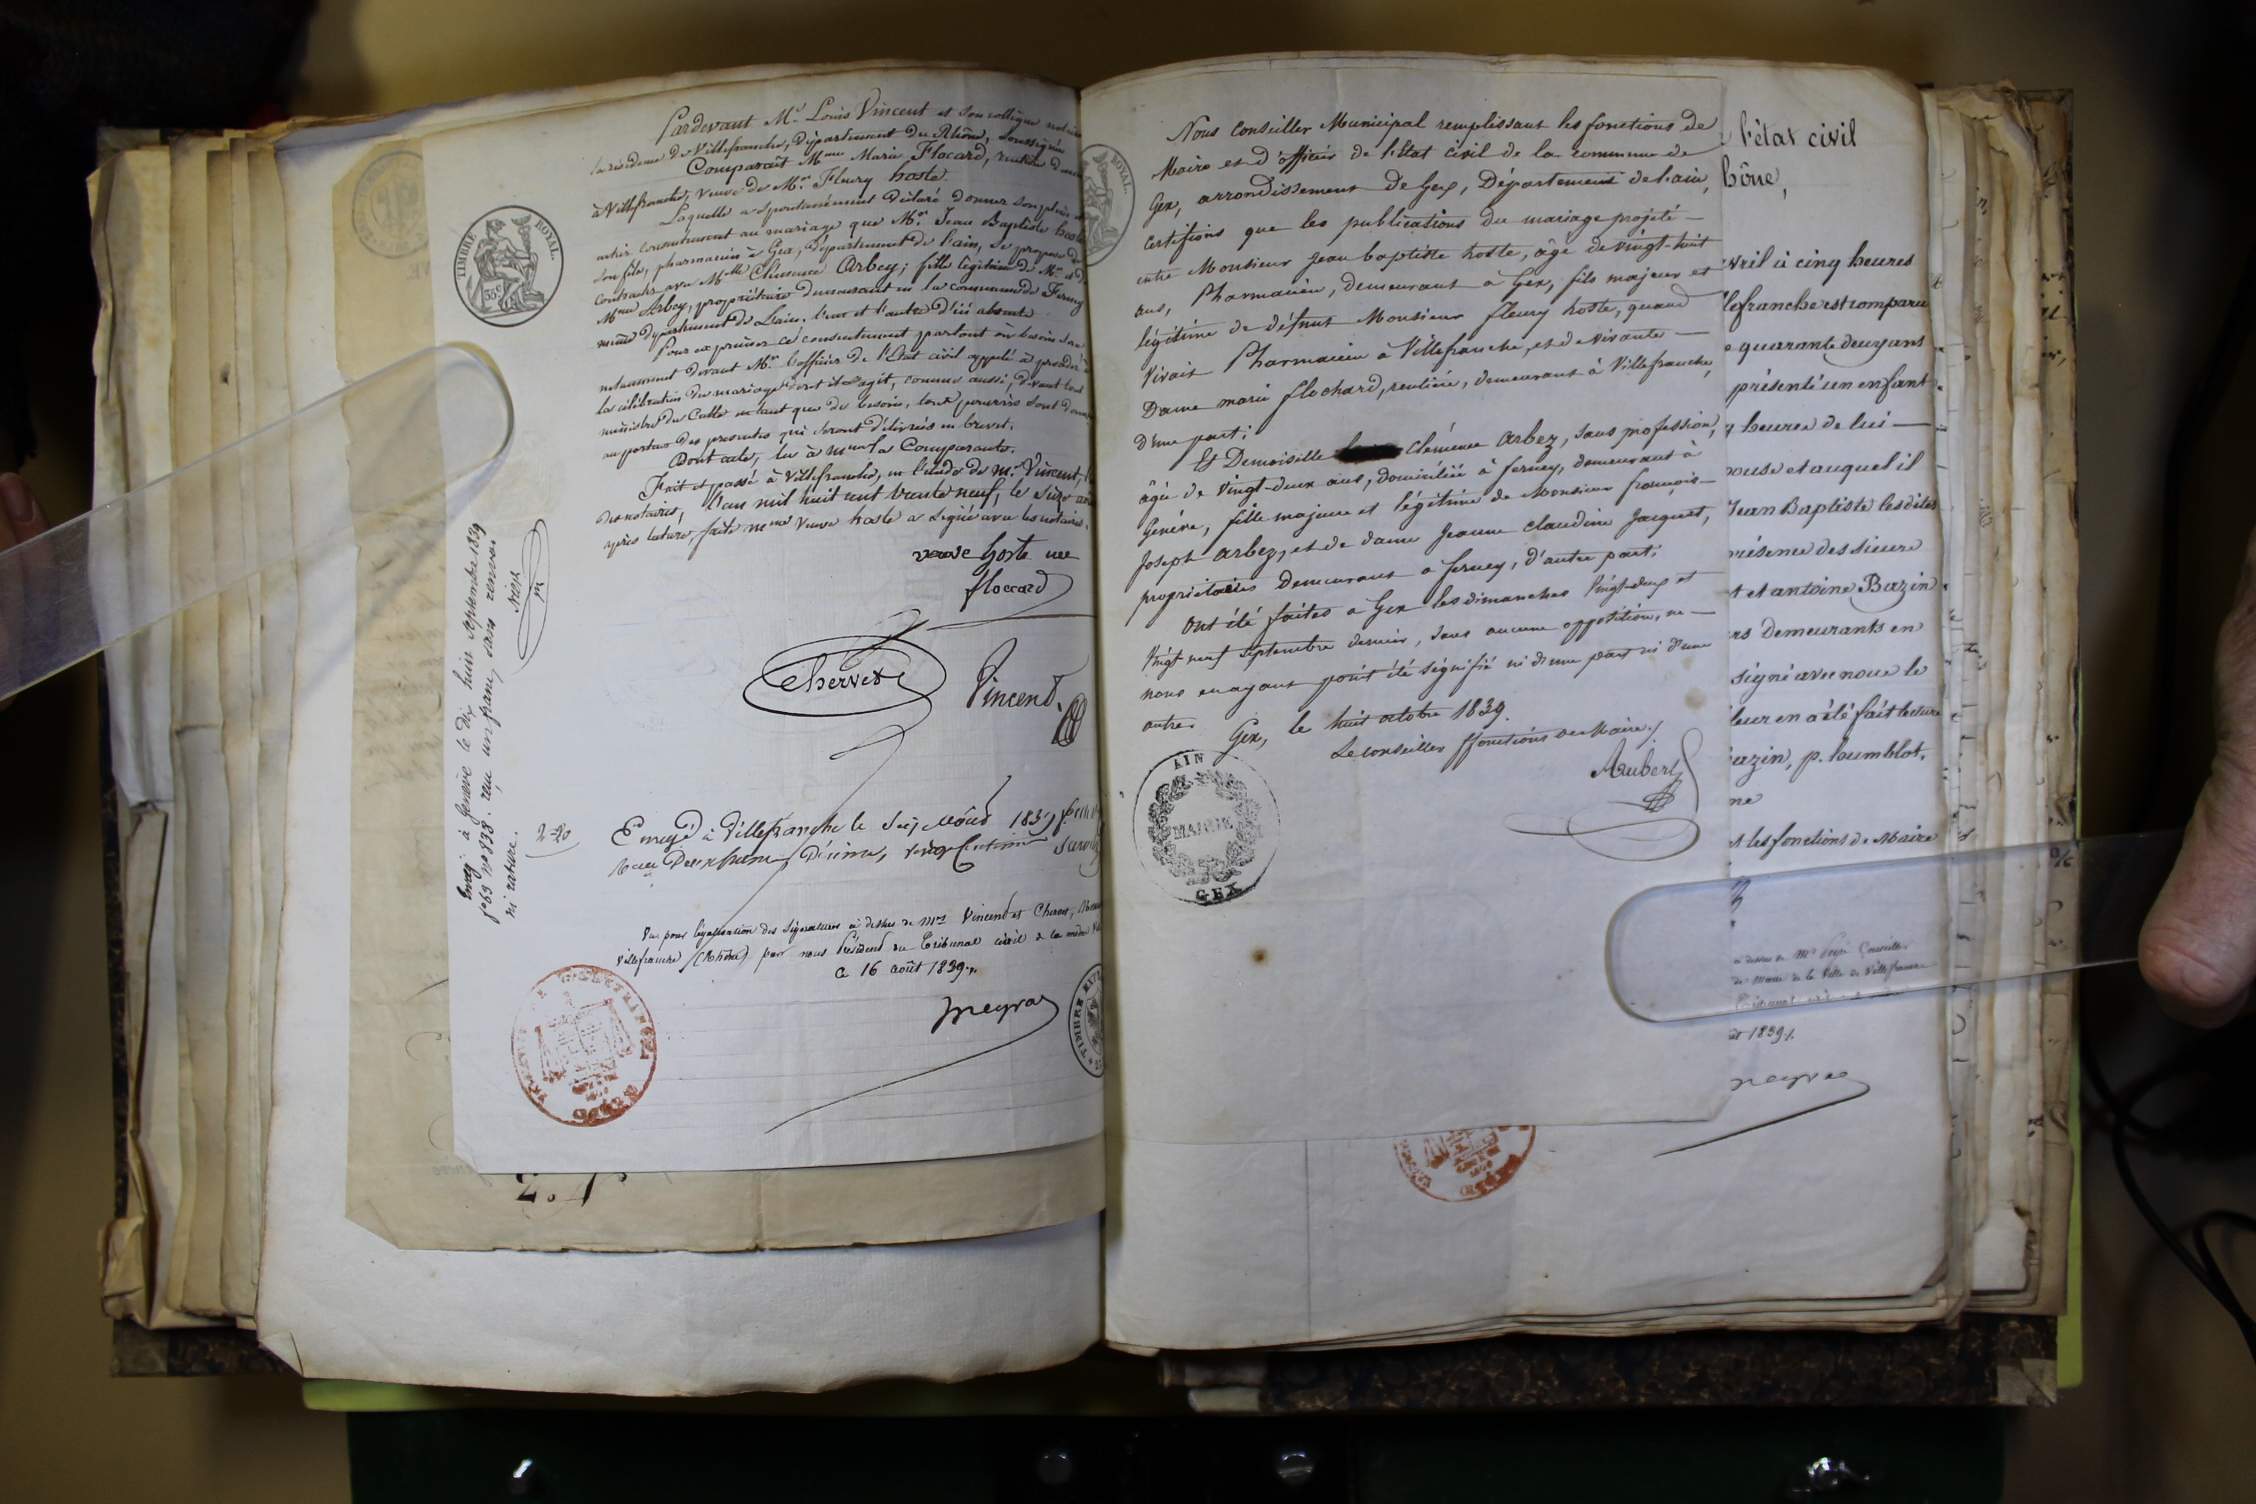 Pardevant Me. Louis Vincent et son collègue notaires
la résidence de Villefranche, Département du Rhône, soussignés
Comparaît Mme Marie Flocard, rentière
à Villefranche, veuve de Mr. Fleury hoste
Laquelle a spontanément déclaré donner son plein et
entier consentement au mariage que Mr. Jean Baptiste hoste
son fils, pharmacien à Gex, département de l'ain, se propose de
contracter avec Melle Clémence Arbey; fille légitime de Mr. et de
Mme Arbey, propriétaires demeurant en la commune de Ferney
même département de l'ain, l'un et l'autre d'ici absents
Pour exprimer ce consentement partout où besoin sera
notamment devant Mr. l'officier de l'Etat civil appelé à procéder à
la célébration du mariage dont il s'agit, comme aussi, devant tout
ministre du Culte en tant que de besoin, tout pouvoirs sont donnés
au porteur des presentes qui seront délivrées en brevet.
Dont acte, lu à mme la Comparante.
Fait et passé à Villefranche, en l'étude de me. Vincent, l'
des notaires, l'an mil huit cent trente neuf, le seize août
après lecture faite mme veuve hoste a signé avec les notaires.
veuve hoste née
floccard
Chervet
Vincent
TIMBRE ROYAL
35c
Enregé à Genève le dix huit septembre 1839
fo 63 no 838. reçu un franc, sans renvoi
ni rature.
2-20
Enregé à Villefranche le seize août 1839
reçu deux francs Décime, vingt Centimes
Vu pour légalisation des signatures ci dessus de Mrs Vincent et Chervet, Notaires
Villefranche (Rhône) par nous Président du Tribunal civil de la même Ville
Ce 16 août 1839.
meyras
Nous Conseiller Municipal remplissant les fonctions de
Maire et d'officier de l'Etat civil de la commune de
Gex, arrondissement de Gex, Département de l'ain,
Certifions que les publications du mariage projeté
entre Monsieur Jean baptiste hoste, âgé de vingt-huit
ans, Pharmacien, demeurant à Gex, fils majeur et
légitime de défunt Monsieur fleury hoste, quand
vivait Pharmacien à Villefranche, et de vivante
Dame marie flochard, rentière, demeurant à Villefranche,
D'une part;
Et Demoiselle Clémence Arbez, sans profession,
âgée de vingt-deux ans, domiciliée à ferney, demeurant à
Genève, fille majeure et légitime de Monsieur françois
Joseph Arbez, et de dame Jeanne Claudine Jacquet,
propriétaires demeurant à ferney, d'autre part;
Ont été faites à Gex les dimanches vingt-deux et
vingt neuf septembre dernier, sans aucune opposition, ne
nous en ayant point été signifié ni d'une part ni d'une
autre.
Gex, le huit octobre 1839.
Le Conseiller ffonctions de Maire.
Aubert
AIN
MAIRIE
GEX
ROYAL.
l'état civil
hône,
avril à cinq heures
lefranche est comparu
quarante deux ans
présenté un enfant
heures de lui
ouse et auquel il
Jean Baptiste lesdites
présence des sieurs
t et antoine Bazin
rs demeurants en
signé avec nous le
leur en a été fait lecture
azin, p. humblot.
ne
t les fonctions de Maire
de Maire de la Ville de Villefranche
1839.
meyras